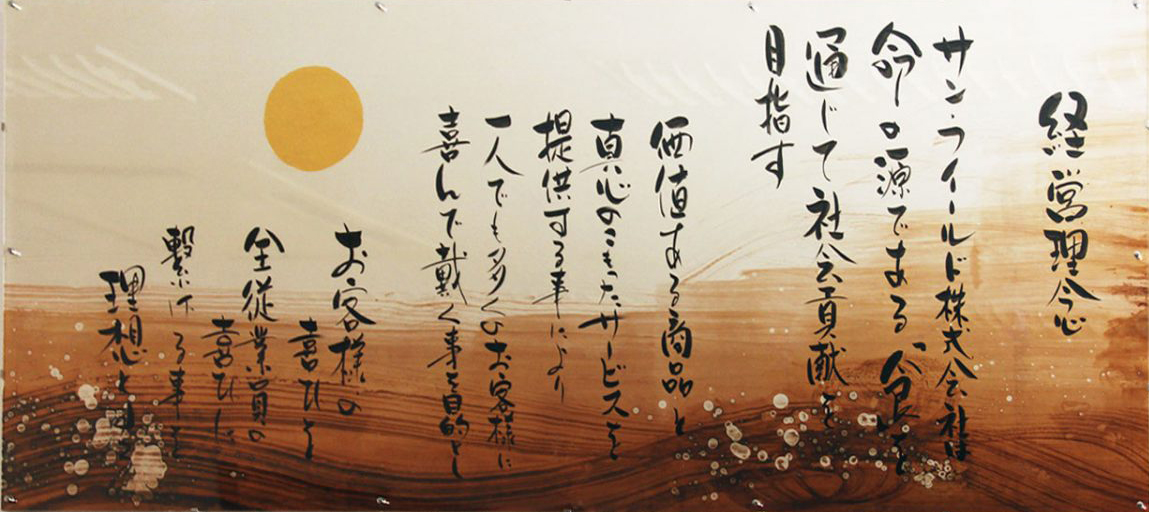 経営理念
サン・フィールド株式会社は
命の源である「食」を
通じて社会貢献を
目指す
価値ある商品と
真心のこもったサービスを
提供する事により
一人でも多くのお客様に
喜んで戴く事を目的とし
お客様の
喜びを
全従業員の
喜びに
繋げる事を
理想と